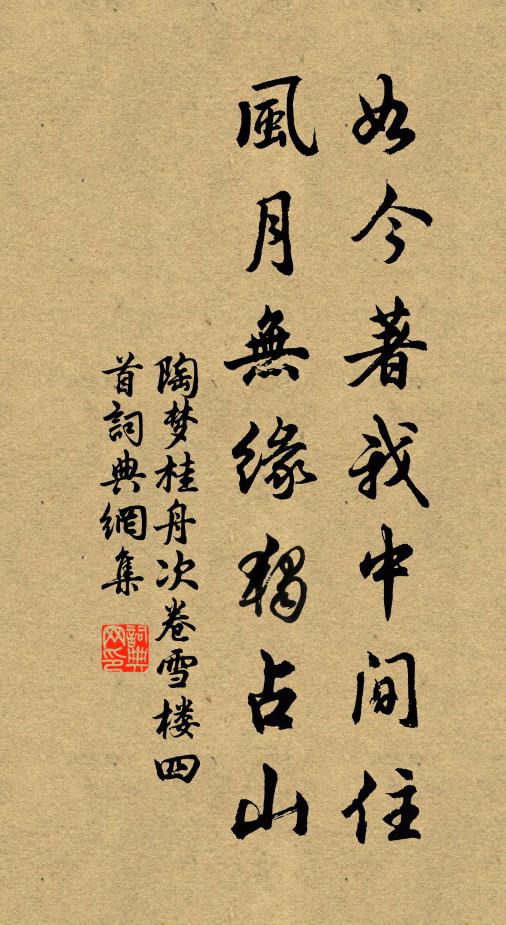 如今著我中间住
風月無緣獨占山
陶梦桂舟次卷雪楼四
首詞典網集
詞典
网印